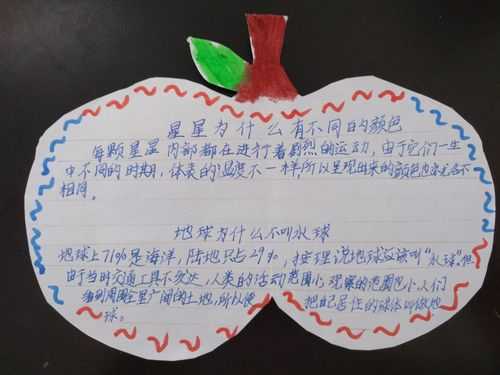 星星为什么有不同的颜色
每颗星星内部都在进行着剧烈的运动,由于它们一生
中不同的时期,体表的温度不一样所以呈现出来的颜色也各不
相同。
地球为什么不叫水球
地球上71%是海洋,陆地只占29%,按理说地球应该叫“水球”。但
由于当时交通工具不发达,人类的活动范围小观察的范围也小人们
看到周围全是广阔的土地,所以便把自己居住的球体叫做地
球。